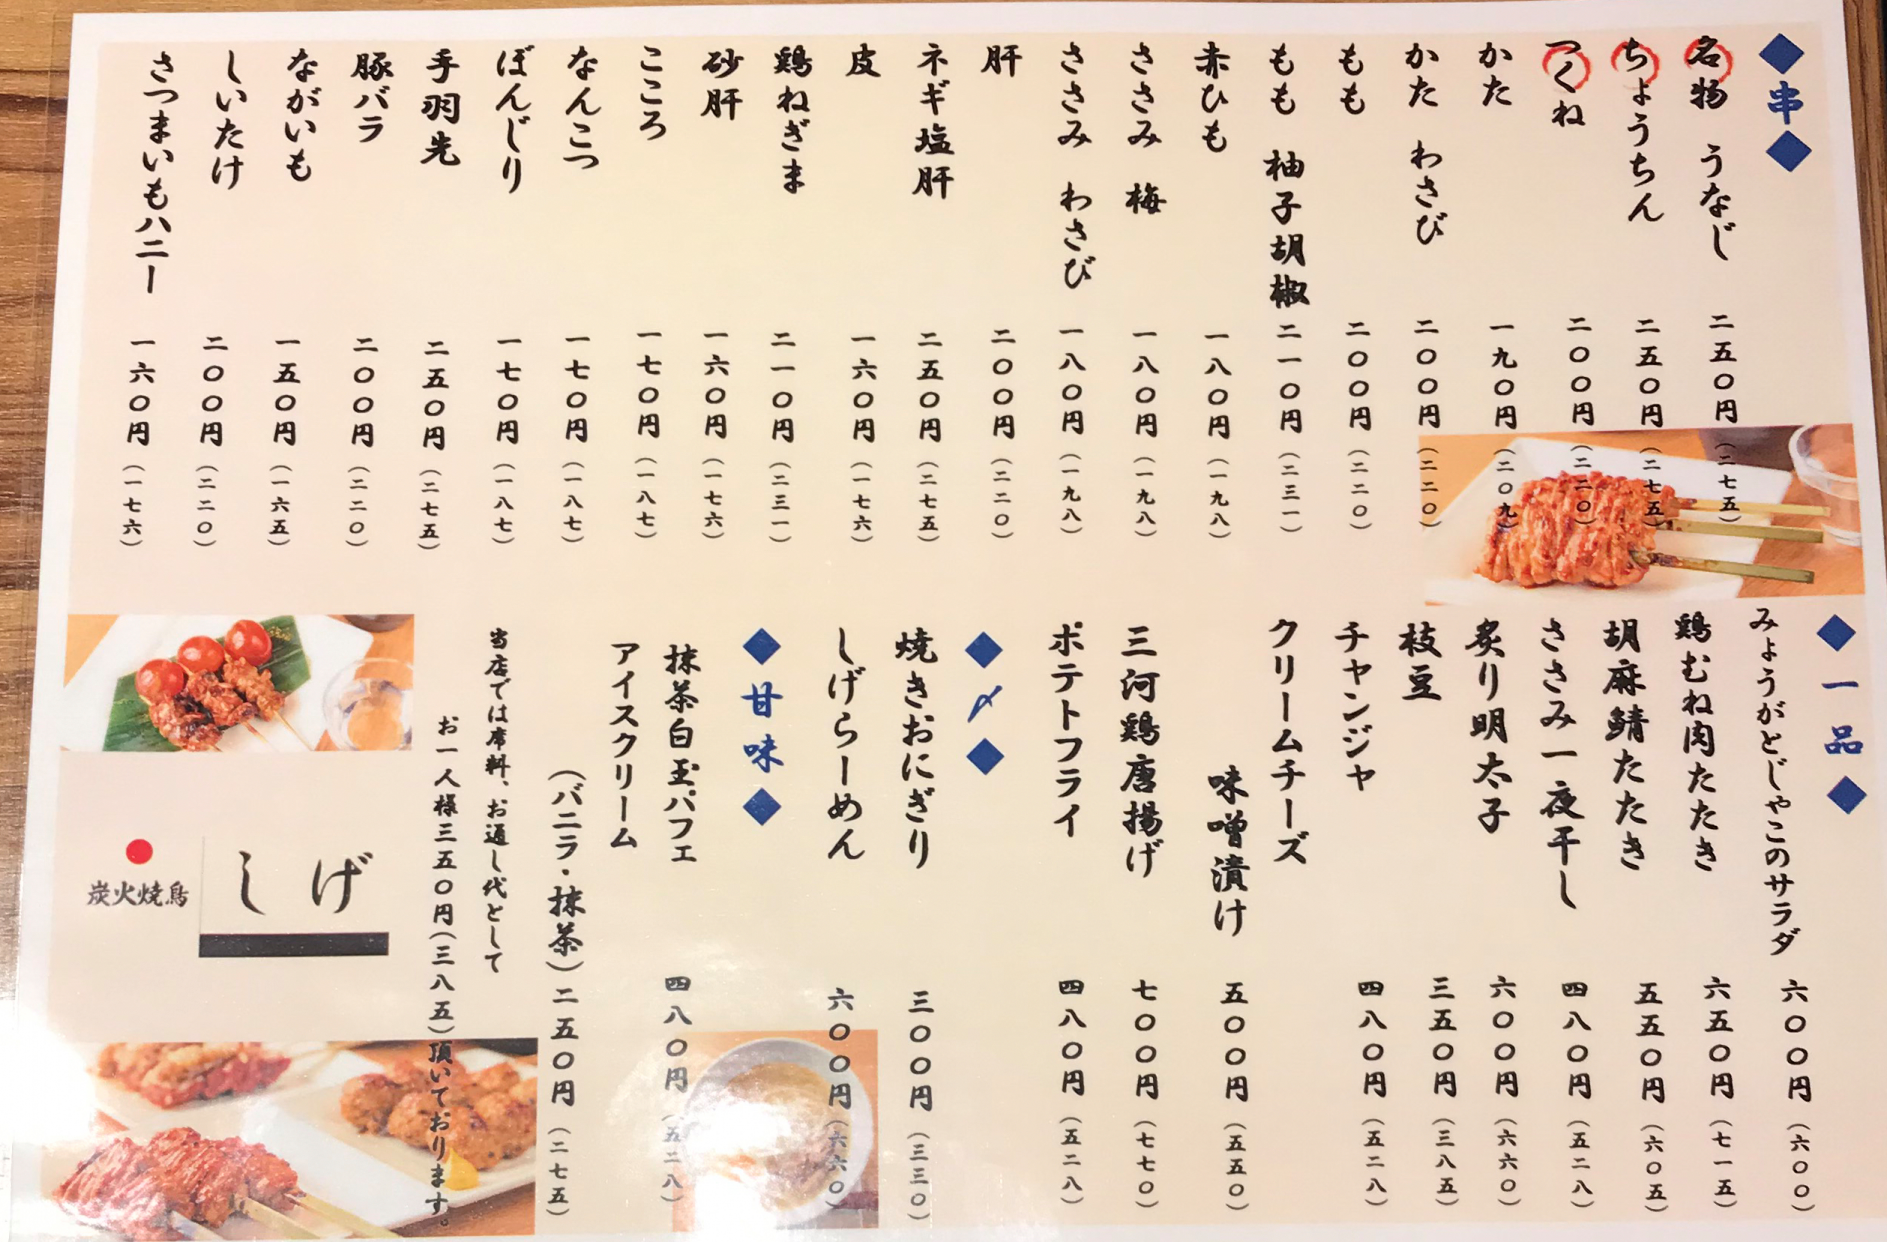 ◆串◆
名物 うなじ 二五〇円(二七五)
ちょうちん 二五〇円(二七五)
つくね 二〇〇円(二二〇)
かた 一九〇円(二〇九)
かた わさび 二〇〇円(二二〇)
もも 二〇〇円(二二〇)
もも 柚子胡椒 二一〇円(二三一)
赤ひも 一八〇円(一九八)
ささみ 梅 一八〇円(一九八)
ささみ わさび 一八〇円(一九八)
肝 二〇〇円(二二〇)
ネギ塩肝 二五〇円(二七五)
皮 一六〇円(一七六)
鶏ねぎま 二一〇円(二三一)
砂肝 一六〇円(一七六)
こころ 一七〇円(一八七)
なんこつ 一七〇円(一八七)
ぼんじり 一七〇円(一八七)
手羽先 二五〇円(二七五)
豚バラ 二〇〇円(二二〇)
ながいも 一五〇円(一六五)
しいたけ 二〇〇円(二二〇)
さつまいもハニー 一六〇円(一七六)
◆一品◆
みょうがとじゃこのサラダ 六〇〇円(六〇〇)
鶏むね肉たたき 六五〇円(七一五)
胡麻鯖たたき 五五〇円(六〇五)
ささみ一夜干し 四八〇円(五二八)
炙り明太子 六〇〇円(六六〇)
枝豆 三五〇円(三八五)
チャンジャ 四八〇円(五二八)
クリームチーズ
味噌漬け 五〇〇円(五五〇)
三河鶏唐揚げ 七〇〇円(七七〇)
ポテトフライ 四八〇円(五二八)
◆〆◆
焼きおにぎり 三〇〇円(三三〇)
しげらーめん 六〇〇円(六六〇)
◆甘味◆
抹茶白玉パフェ 四八〇円(五二八)
アイスクリーム
(バニラ・抹茶)二五〇円(二七五)
当店では席料、お通し代として
お一人様三五〇円(三八五)頂いております。
炭火焼鳥
しげ